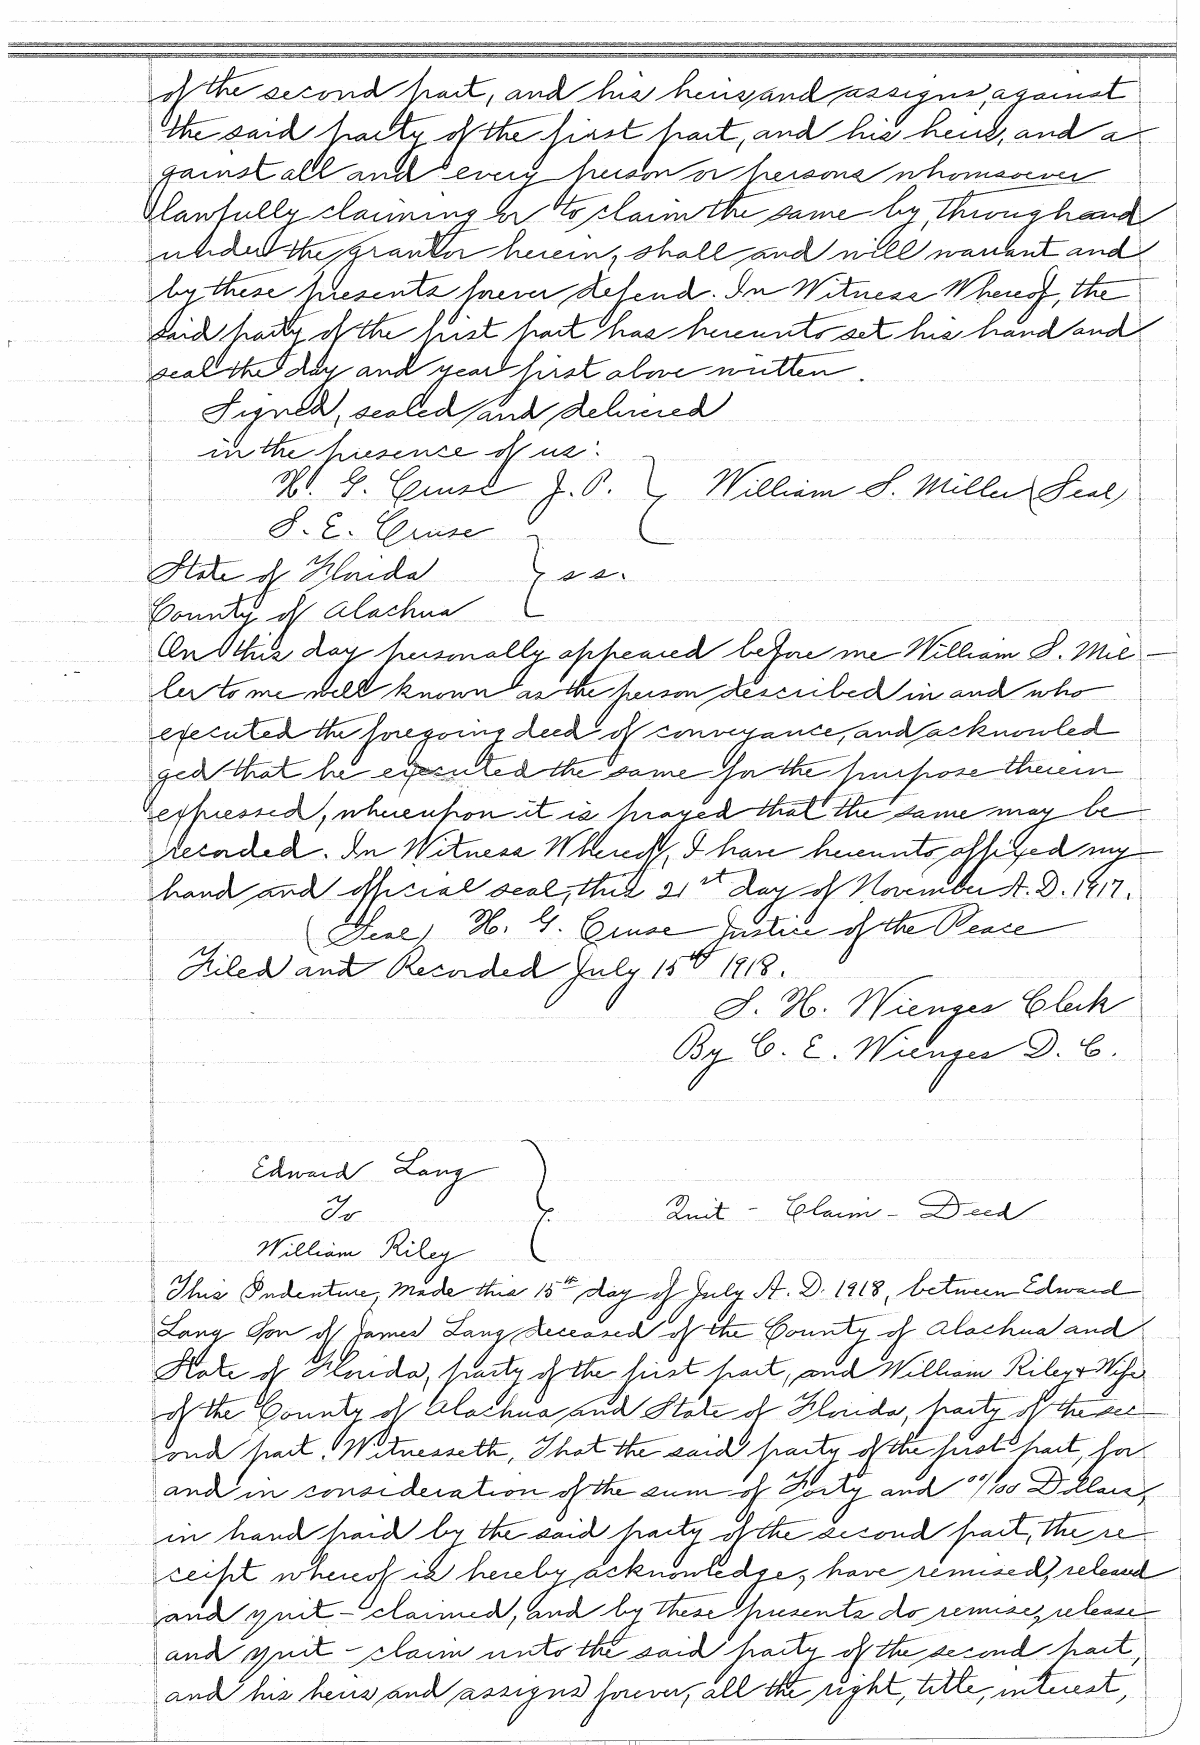 of the second part, and his heirs and assigns, against
the said party of the first part, and his heirs, and a
gainst all and every person or persons whomsoever
lawfully claiming or to claim the same by, through and
under the grantor herein, shall and will warrant and
by these presents forever defend. In Witness Whereof, the
said party of the first part has hereunto set his hand and
seal the day and year first above written.
Signed, sealed and delivered
in the presence of us:
H. G. Cruse J. P. } William S. Miller (Seal)
S. E. Cruse
State of Florida } ss.
County of Alachua
On this day personally appeared before me William S. Mil-
ler to me well known as the person described in and who
executed the foregoing deed of conveyance, and acknowled
ged that he executed the same for the purpose therein
expressed, whereupon it is prayed that the same may be
recorded. In Witness Whereof, I have hereunto affixed my
hand and official seal, this 21st day of November A. D. 1917.
(Seal) H. G. Cruse Justice of the Peace
Filed and Recorded July 15th 1918.
S. H. Wienges Clerk
By C. E. Wienges D. C.
Edward Lang
To } Quit - Claim - Deed
William Riley
This Indenture, Made this 15th day of July A. D. 1918, between Edward
Lang Son of James Lang, deceased of the County of Alachua and
State of Florida, party of the first part, and William Riley & Wife
of the County of Alachua and State of Florida, party of the sec
ond part. Witnesseth, That the said party of the first part, for
and in consideration of the sum of Forty and 00/100 Dollars,
in hand paid by the said party of the second part, the re
ceipt whereof is hereby acknowledge, have remised, released
and quit-claimed, and by these presents do remise, release
and quit-claim unto the said party of the second part,
and his heirs and assigns forever, all the right, title, interest,